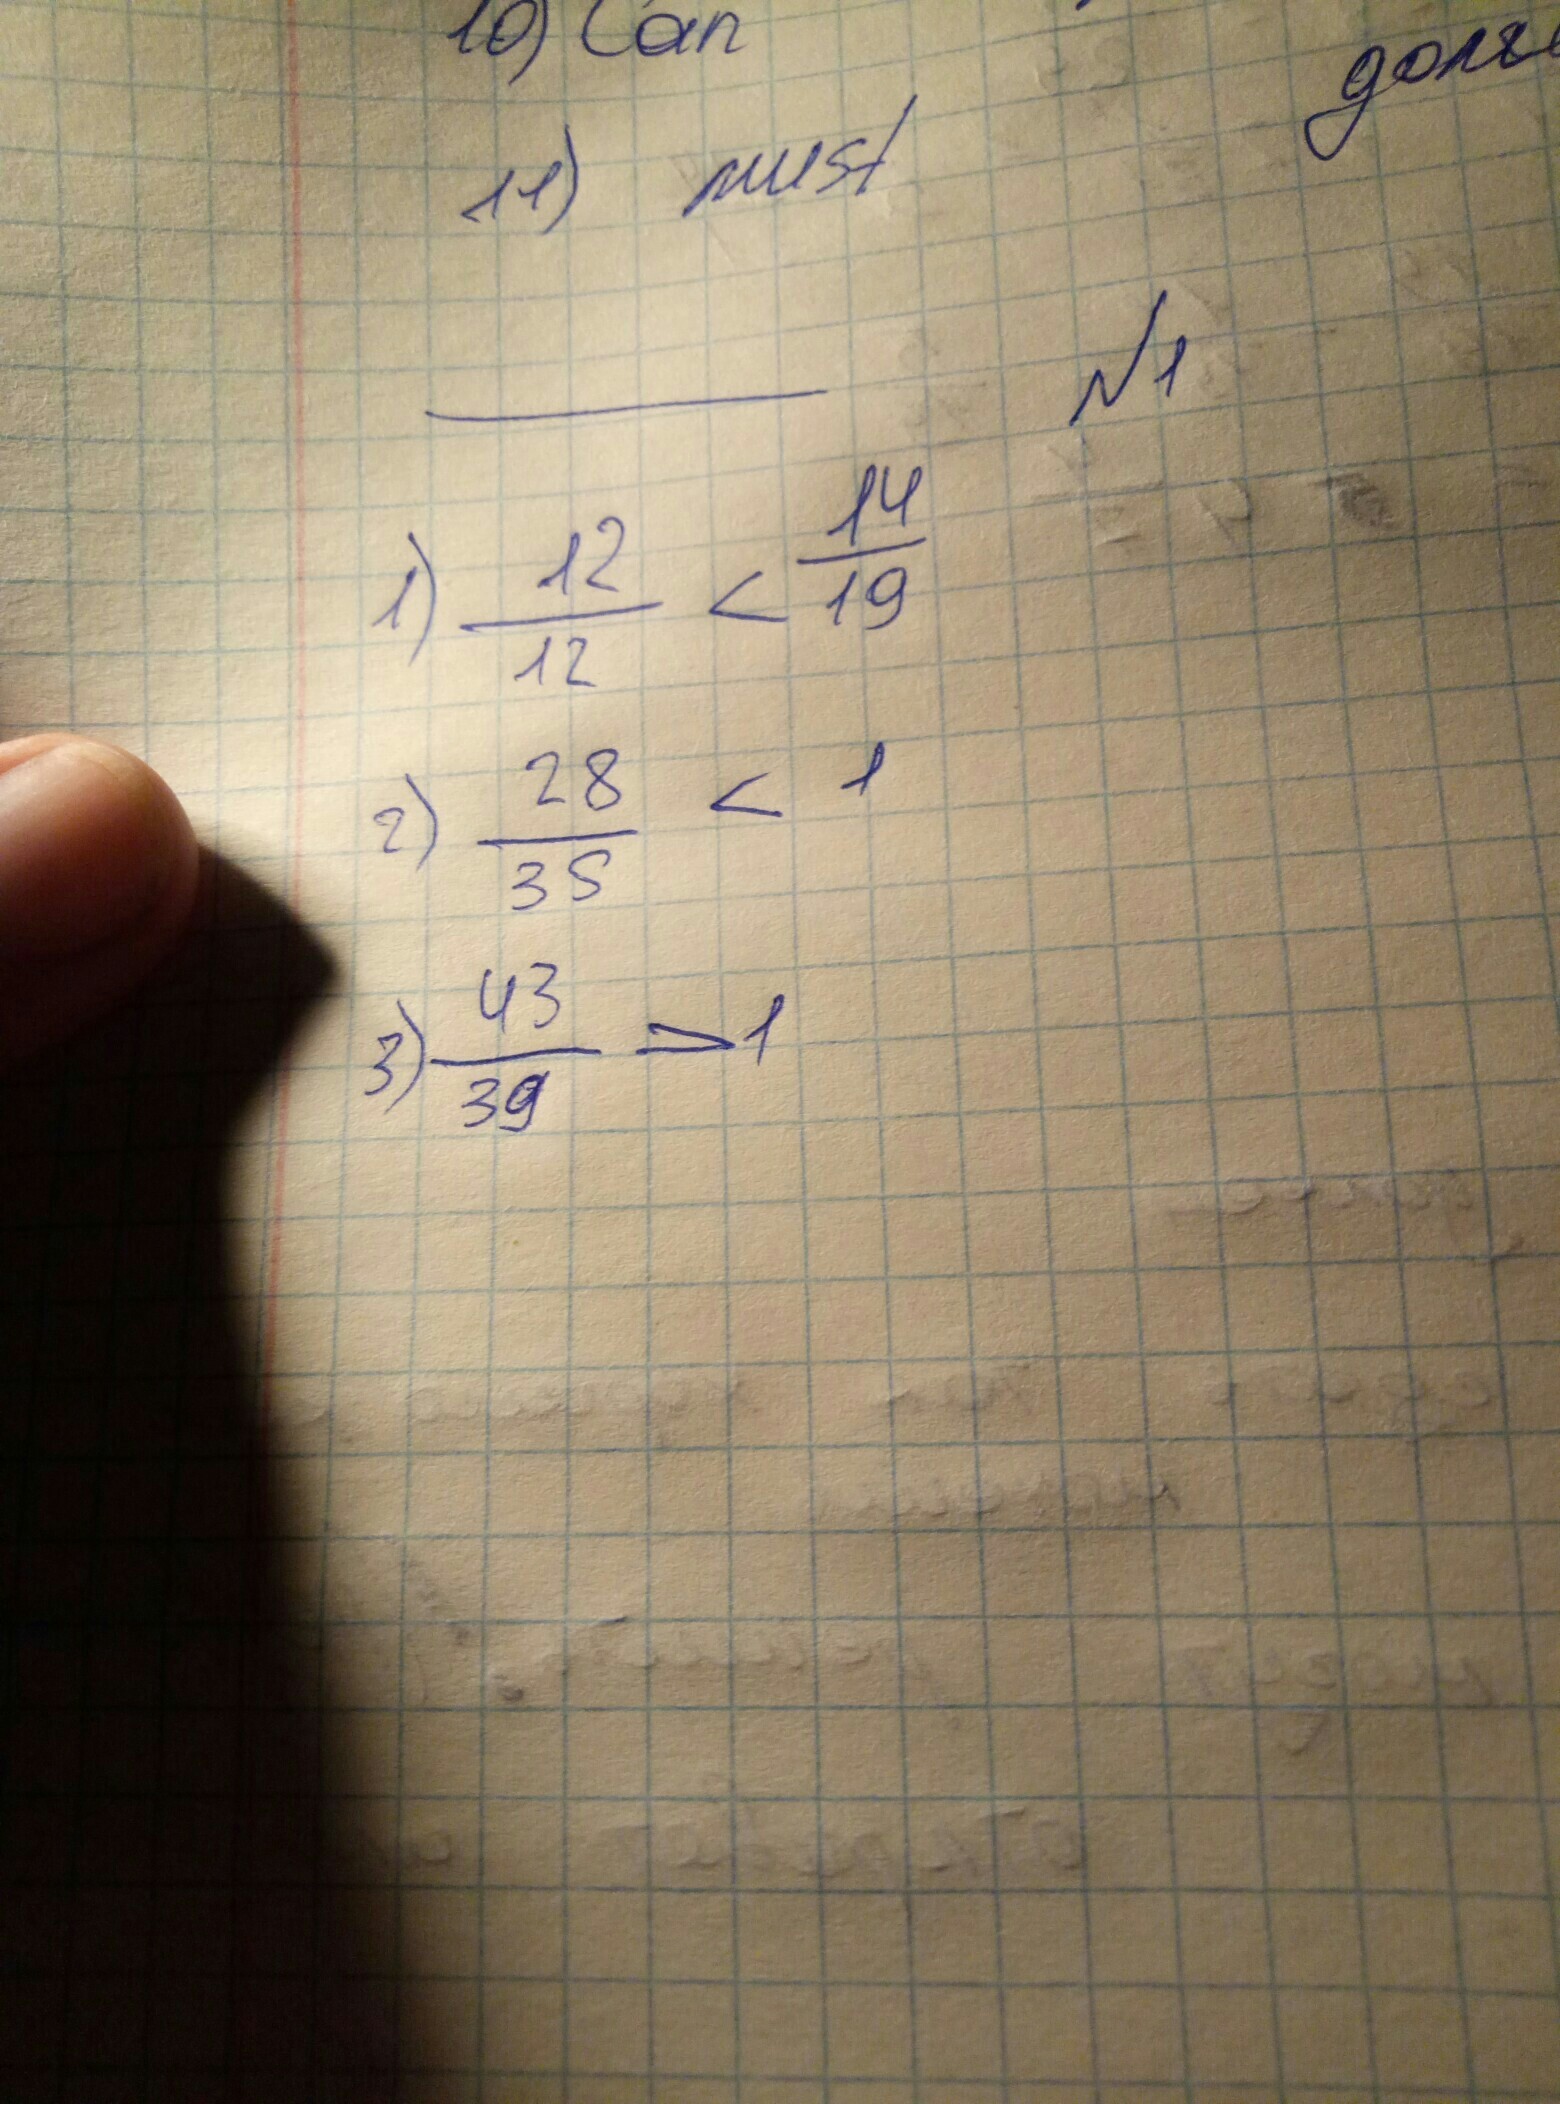 10) Can
11) must
№1
1) 12/12 < 14/19
2) 28/35 < 1
3) 43/39 > 1